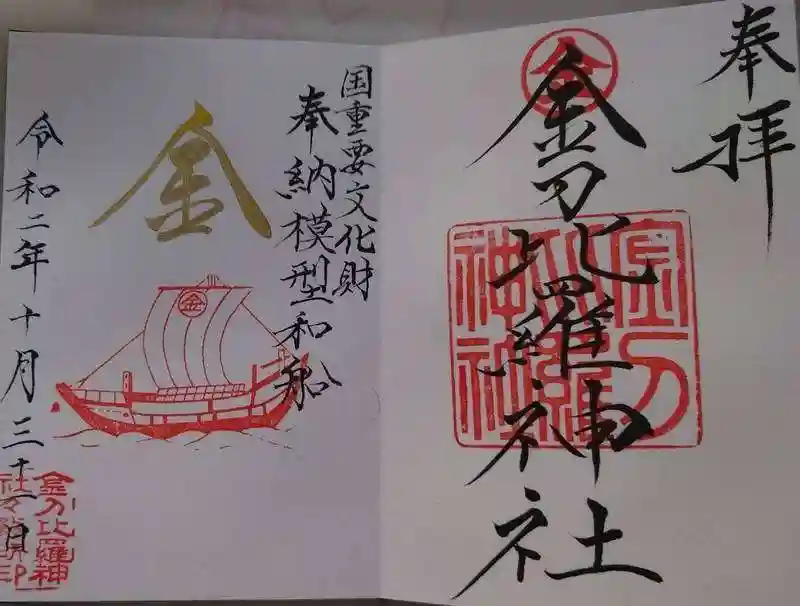 奉拝
金
金刀比羅神社
金刀比羅神社
国重要文化財
奉納模型和船
金
金
令和二年十月三十一日
金刀比羅神